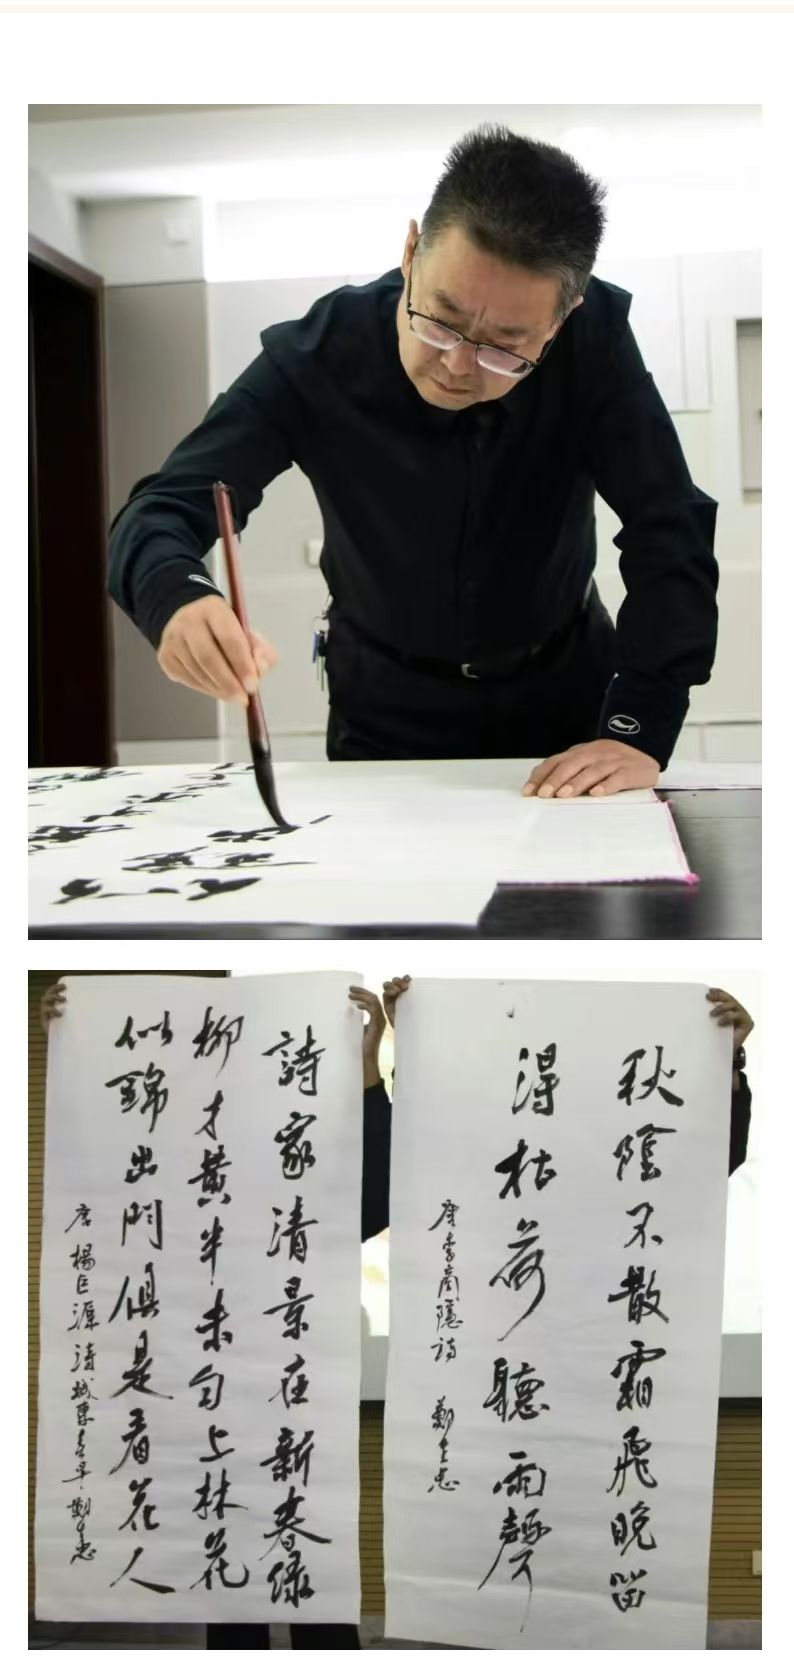 秋陰不散霜飛晚留
得枯荷聽雨聲
唐李商隱詩 鄭
詩家清景在新春緑
柳才黄半未勻上林花
似錦出門俱是看花人
唐楊巨源詩城東春早 鄭